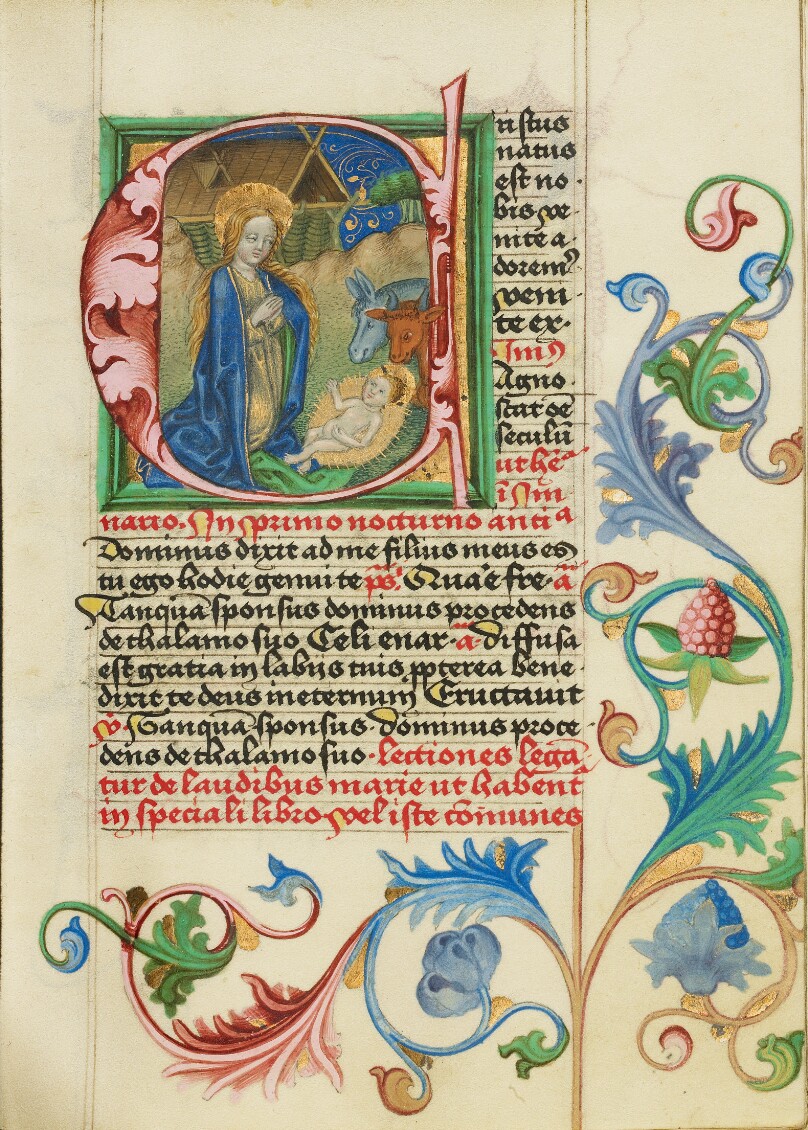 Cristus
natus
est no
bis ve
nite a
dorem9
veni
te ex.
Jm9
Agno
scat oē
seculū
ut hē
i Jm
nario. In primo nocturno anti a
Dominus dixit ad me filius meus es
tu ego hodie genui te ps. Quāe fre. ā
Tanquā sponsus dominus procedens
de thalamo suo Celi enar. a. diffusa
est gratia in labijs tuis ppterea bene
dixit te deus in eternum Eructauit
v. Tanquā sponsus. dominus proce
dens de thalamo suo. lectiones legā
tur de laudibus marie ut habent
in speciali libro. vel iste cōmunes